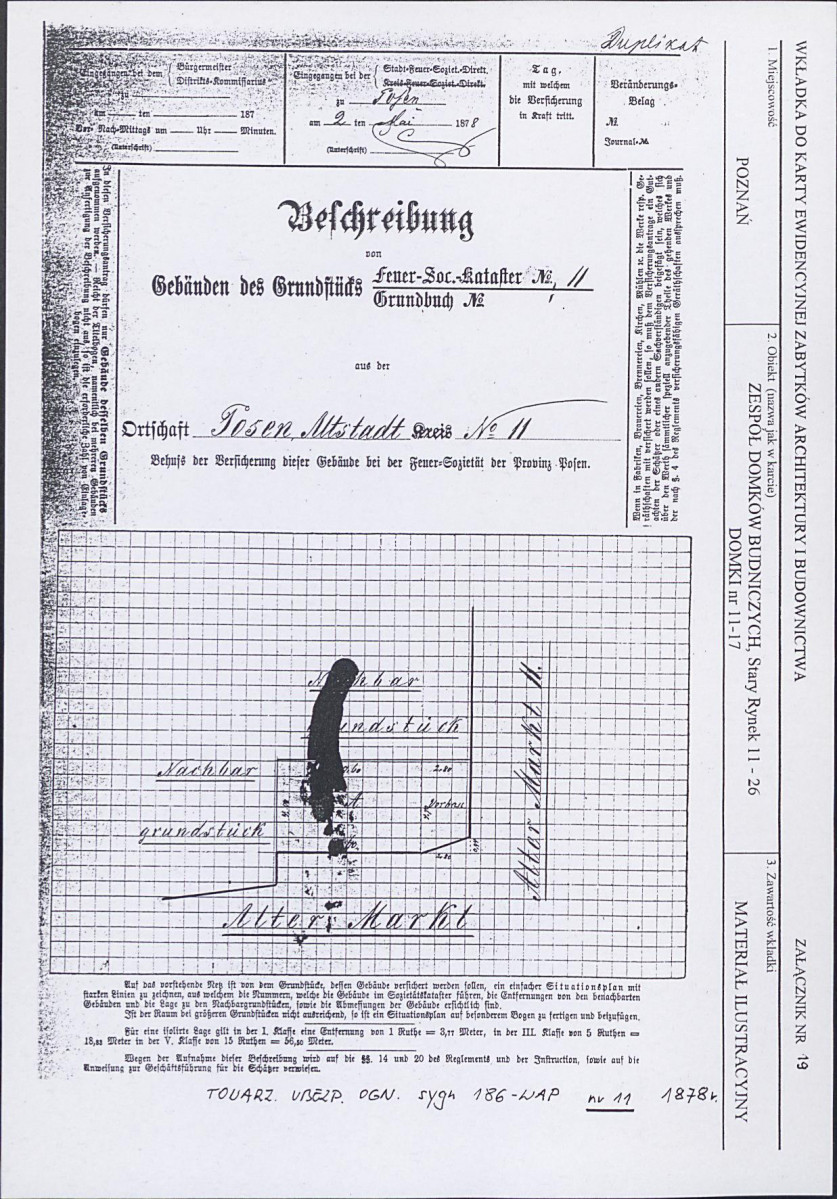 Duplikat
Eingegangen bei dem { Bürgermeister
Distrikts-Kommissarius
zu
am ten 187
Vor- Nach-Mittags um Uhr Minuten.
(Unterschrift)
Eingegangen bei der { Stadt-Feuer-Soziet.-Direkt.
Kreis-Feuer-Soziet.-Direkt.
zu Posen
am 2 ten Mai 1878
(Unterschrift)
Tag,
mit welchem
die Versicherung
in Kraft tritt.
Veränderungs-
Belag
№.
Journal-№
In diesen Versicherungsantrag dürfen nur Gebäude desselben Grundstücks
aufgenommen werden. — Reicht der Titelbogen, namentlich bei mehreren Gebäuden
zur Anfertigung der Beschreibung nicht aus, so ist die erforderliche Zahl von Einlage-
bogen einzulegen.
Beschreibung
von
Gebänden des Grundstücks Feuer-Soc.-Kataster №. 11
Grundbuch №
aus der
Ortschaft Posen, Altstadt Kreis № 11
Behufs der Versicherung dieser Gebäude bei der Feuer-Sozietät der Provinz Posen.
Wenn in Fabriken, Brauereien, Brennereien, Kirchen, Mühlen ꝛc. die Werke resp. Ge-
räthschaften mit versichert werden sollen, so muß dem Versicherungsantrage ein Gut-
achten der Schätzer oder eines andern Sachverständigen beigefügt sein, welches sich
über den Werth sämmtlicher speziell anzugebender Theile des gehenden Werkes und
der nach §. 4 des Reglements versicherungsfähigen Geräthschaften aussprechen muß.
Nachbar
grundstück
Nachbar
grundstück
2.80
Vorbau
2.80
Alter Markt 11.
Alter Markt
Auf das vorstehende Netz ist von dem Grundstücke, dessen Gebäude versichert werden sollen, ein einfacher Situationsplan mit
starken Linien zu zeichnen, aus welchem die Nummern, welche die Gebäude im Sozietätskataster führen, die Entfernungen von den benachbarten
Gebäuden und die Lage zu den Nachbargrundstücken, sowie die Abmessungen der Gebäude ersichtlich sind.
Ist der Raum bei größeren Grundstücken nicht ausreichend, so ist ein Situationsplan auf besonderem Bogen zu fertigen und beizufügen.
Für eine isolirte Lage gilt in der I. Klasse eine Entfernung von 1 Ruthe = 3,77 Meter, in der III. Klasse von 5 Ruthen =
18,83 Meter in der V. Klasse von 15 Ruthen = 56,50 Meter.
Wegen der Aufnahme dieser Beschreibung wird auf die §§. 14 und 20 des Reglements und der Instruction, sowie auf die
Anweisung zur Geschäftsführung für die Schätzer verwiesen.
TOWARZ. UBEZP. OGN. sygn 186-WAP nr 11 1878r.
WKŁADKA DO KARTY EWIDENCYJNEJ ZABYTKÓW ARCHITEKTURY I BUDOWNICTWA
ZAŁĄCZNIK NR 19
1. Miejscowość
POZNAŃ
2. Obiekt (nazwa jak w karcie)
ZESPÓŁ DOMKÓW BUDNICZYCH, Stary Rynek 11 - 26
DOMKI nr 11-17
3. Zawartość wkładki
MATERIAŁ ILUSTRACYJNY